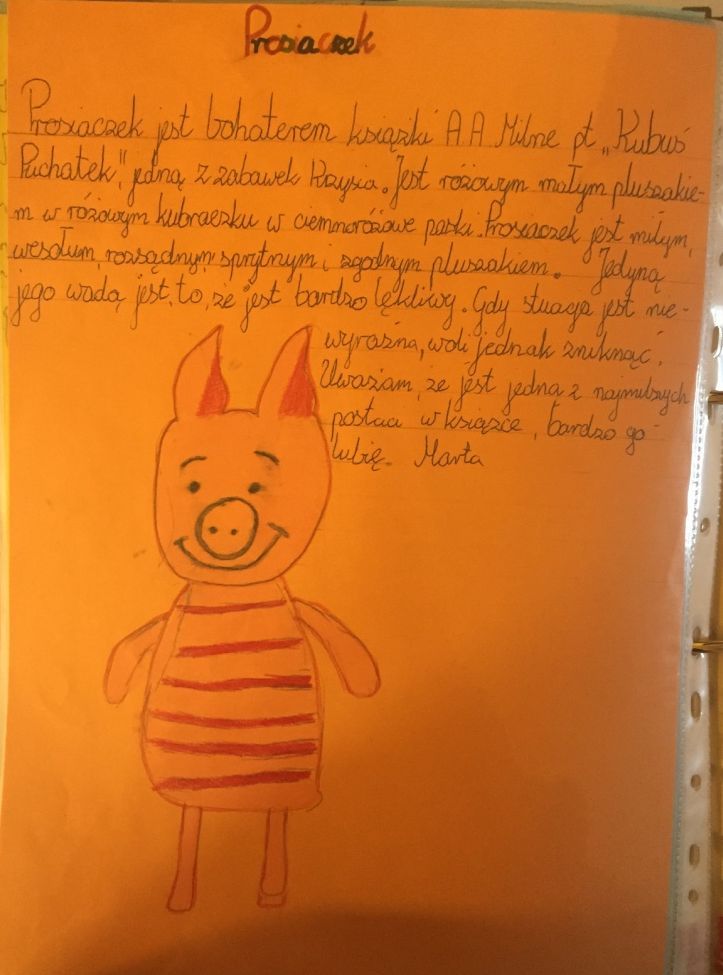 Prosiaczek
Prosiaczek jest bohaterem książki A.A Milne pt „Kubuś
Puchatek", jedną z zabawek Krzysia. Jest różowym małym pluszakie-
m w różowym kubraczku w ciemnoróżowe paski. Prosiaczek jest miłym,
wesołym, rozsądnym, sprytnym i zgodnym pluszakiem. Jedyną
jego wadą jest to, że jest bardzo lękliwy. Gdy sytuacja jest nie-
wyraźna, woli jednak zniknąć.
Uważam, że jest jedną z najmilszych
postaci w książce, bardzo go
lubię. Marta